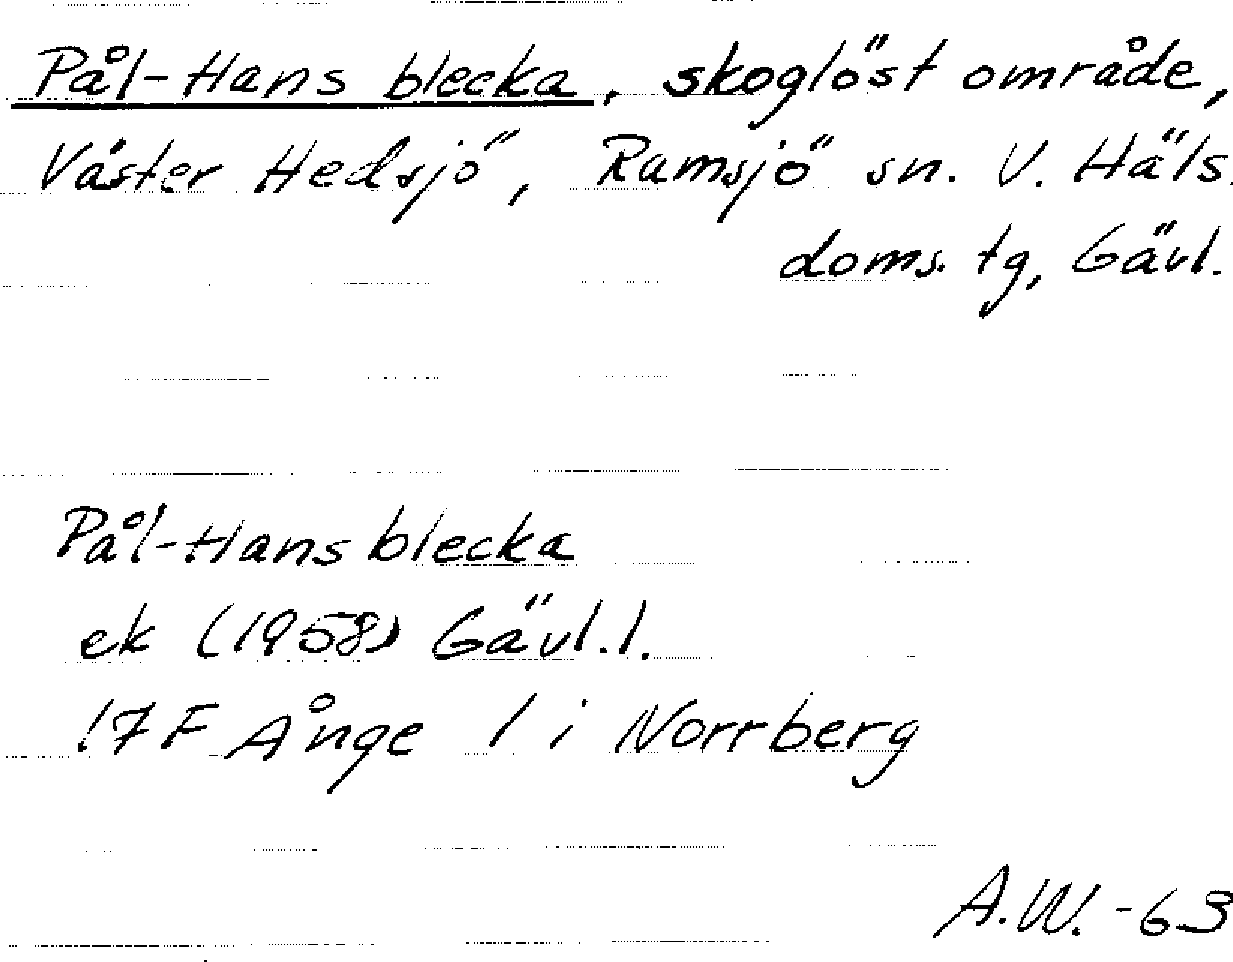 Pål-Hans blecka, skoglöst område,
Väster Hedsjö, Ramsjö sn. V. Häls.
doms. tg, Gävl.
Pål-Hans blecka
ek (1958) Gävl. l.
17F Ånge 1 i Norrberg
A.W. -63